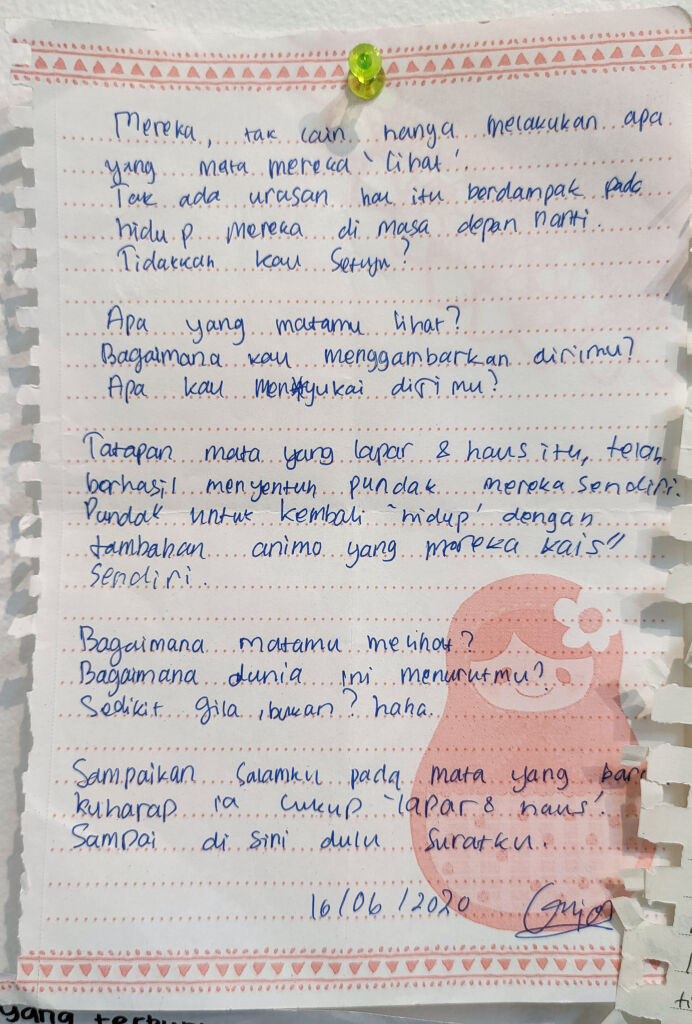 Mereka, tak lain, hanya melakukan apa
yang mata mereka 'lihat'.
Tak ada urasan hal itu berdampak pada
hidup mereka di masa depan nanti.
Tidakkah kau setuju?
Apa yang matamu lihat?
Bagaimana kau menggambarkan dirimu?
Apa kau menyukai dirimu?
Tatapan mata yang lapar & haus itu, telah
berhasil menyentuh pundak mereka sendiri.
Pundak untuk kembali 'hidup' dengan
tambahan animo yang mereka kais"
sendiri.
Bagaimana matamu melihat?
Bagaimana dunia ini menurutmu?
Sedikit gila, bukan? haha.
Sampaikan salamku pada mata yang
kuharap ia cukup 'lapar & haus'.
Sampai di sini dulu suratku.
16/06/2020
yang